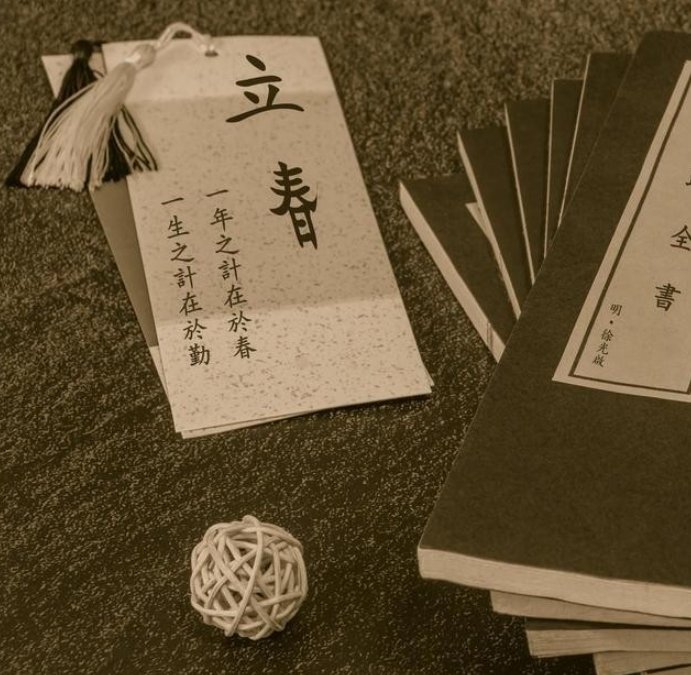 立春
一年之計在於春
一生之計在於勤
全書
明·徐光啟